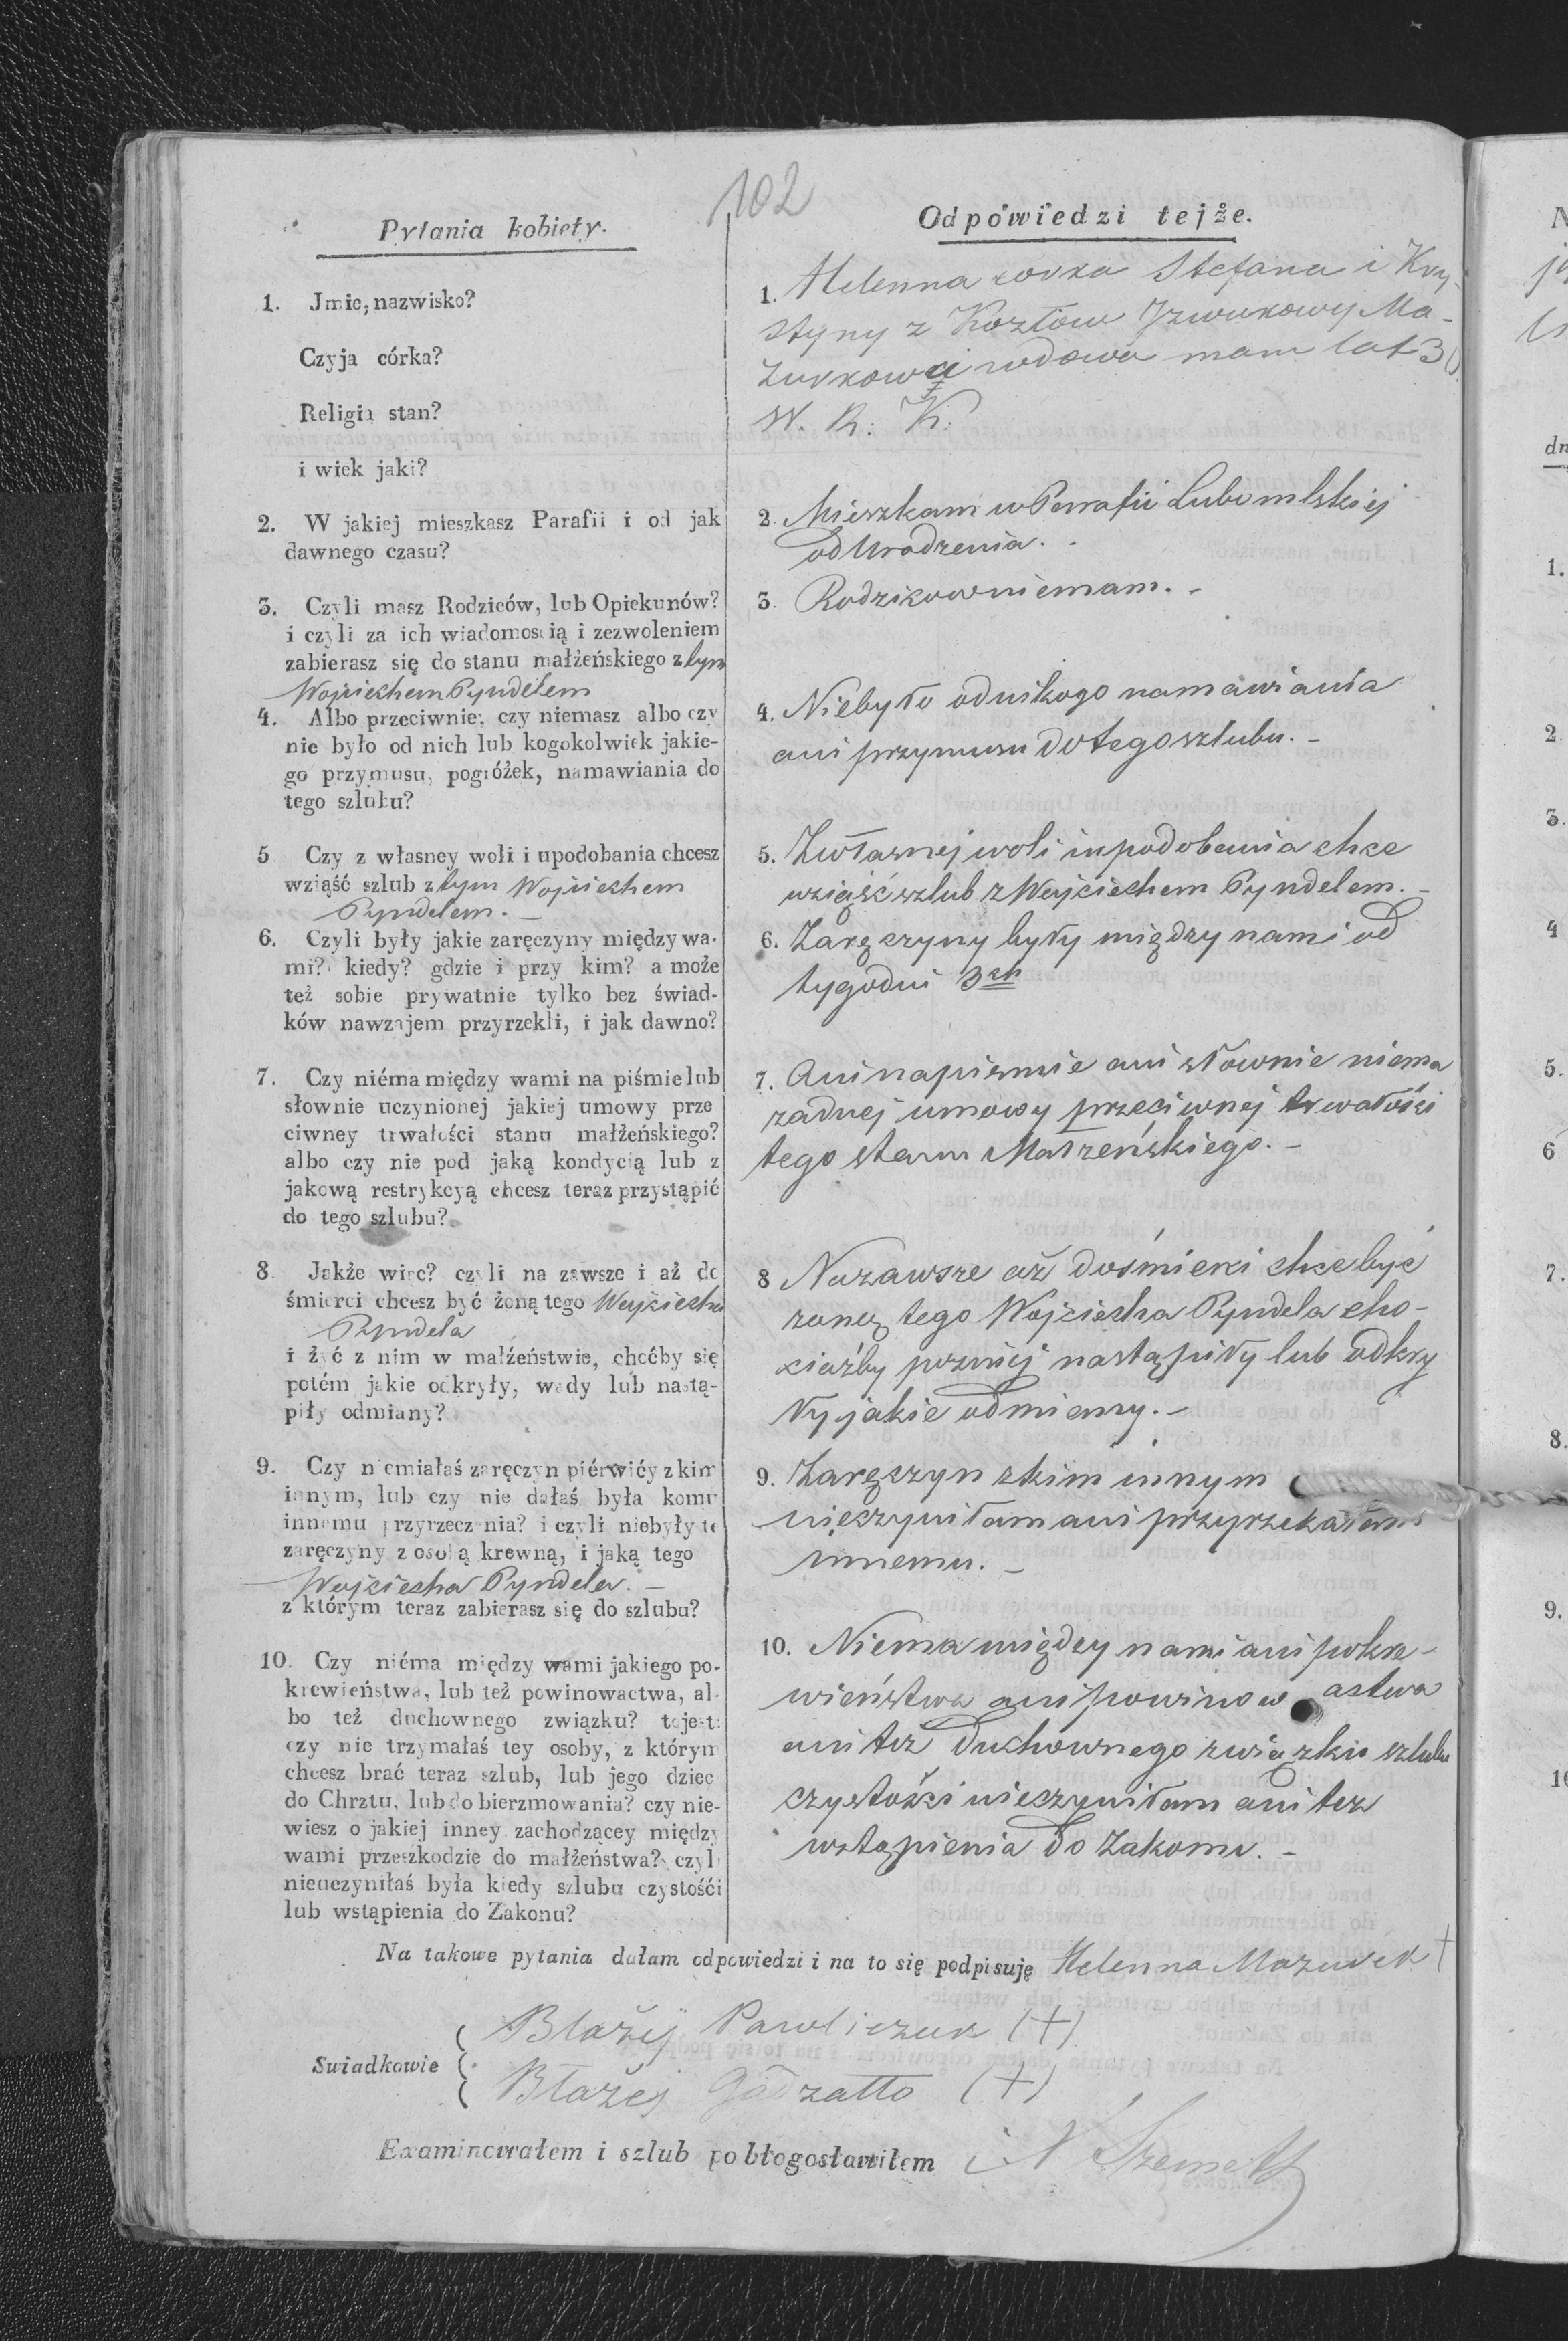 102
Pytania kobiety.
1. Jmie, nazwisko?
Czyja córka?
Religia stan?
i wiek jaki?
2. W jakiej mieszkasz Parafii i od jak
dawnego czasu?
3. Czyli masz Rodziców, lub Opiekunów?
i czyli za ich wiadomością i zezwoleniem
zabierasz się do stanu małżeńskiego z tym
Wojciechem Pyndelem
4. Albo przeciwnie; czy niemasz albo czy
nie było od nich lub kogokolwiek jakie-
go przymusu, pogróżek, namawiania do
tego szlubu?
5 Czy z własney woli i upodobania chcesz
wziąść szlub z tym Wojciechem
Pyndelem. –
6. Czyli były jakie zaręczyny między wa-
mi? kiedy? gdzie i przy kim? a może
też sobie prywatnie tylko bez świad-
ków nawzajem przyrzekli, i jak dawno?
7. Czy niéma między wami na piśmie lub
słownie uczynionej jakiej umowy prze
ciwney trwałości stanu małżeńskiego?
albo czy nie pod jaką kondycią lub z
jakową restrykcyą chcesz teraz przystąpić
do tego szlubu?
8 Jakże więc? czyli na zawsze i aż do
śmierci chcesz być żoną tego Wojciecha
Pyndela
i żyć z nim w małżeństwie, choćby się
potém jakie odkryły, wady lub nastą-
piły odmiany?
9. Czy niemiałaś zaręczyn piérwićy z kim
innym, lub czy nie dałaś była komu
innemu przyrzeczenia? i czyli niebyły te
zaręczyny z osobą krewną, i jaką tego
Wojciecha Pyndela. –
z którym teraz zabierasz się do szlubu?
10. Czy niéma między wami jakiego po-
krewieństwa, lub też powinowactwa, al-
bo też duchownego związku? to jest:
czy nie trzymałaś tey osoby, z którym
chcesz brać teraz szlub, lub jego dziec
do Chrztu, lub do bierzmowania? czy nie-
wiesz o jakiej inney zachodzącey między
wami przeszkodzie do małżeństwa? czyli
nieuczyniłaś była kiedy szlubu czystości
lub wstąpienia do Zakonu?
Odpowiedzi tejże.
1. Helenna corka Stefana i Kry-
styny z Kozłow Ma-
zurkowa wdowa mam lat 30
W. R: K:
2. Mieszkam w Parafii Lubomlskiej
od Urodzenia.
3. Rodzicow niemam. –
4. Niebyło od nikogo namawiania
ani przymusu do tego szlubu. –
5. Z własnej woli i upodobania chce
wziąść szlub z Wojciechem Pyndelem. –
6. Zaręczyny były między nami od
tygodni 3ch
7. Ani na pismie ani słownie niema
zadnej umowy przeciwnej trwałości
tego stanu Małzeńskiego. –
8 Na zawsze aż do śmierci chce być
zoną tego Wojciecha Pyndela cho-
ciażby pozniej nastąpiły lub odkry
ły jakie odmiany. –
9. Zaręczyn z kim innym
nieczyniłam ani przyrzekałam
innemu. –
10. Niema między nami ani pokre-
wieństwa ani powinow actwa
ani też duchownego związku szlubu
czystości nieczyniłam ani tez
wstąpienia do Zakonu. –
Na takowe pytania dałam odpowiedzi i na to się podpisuję Helenna Mazurek +
Swiadkowie
Błażej Pawliczuk (+)
Błażej (+)
Examinowałem i szlub pobłogosławiłem